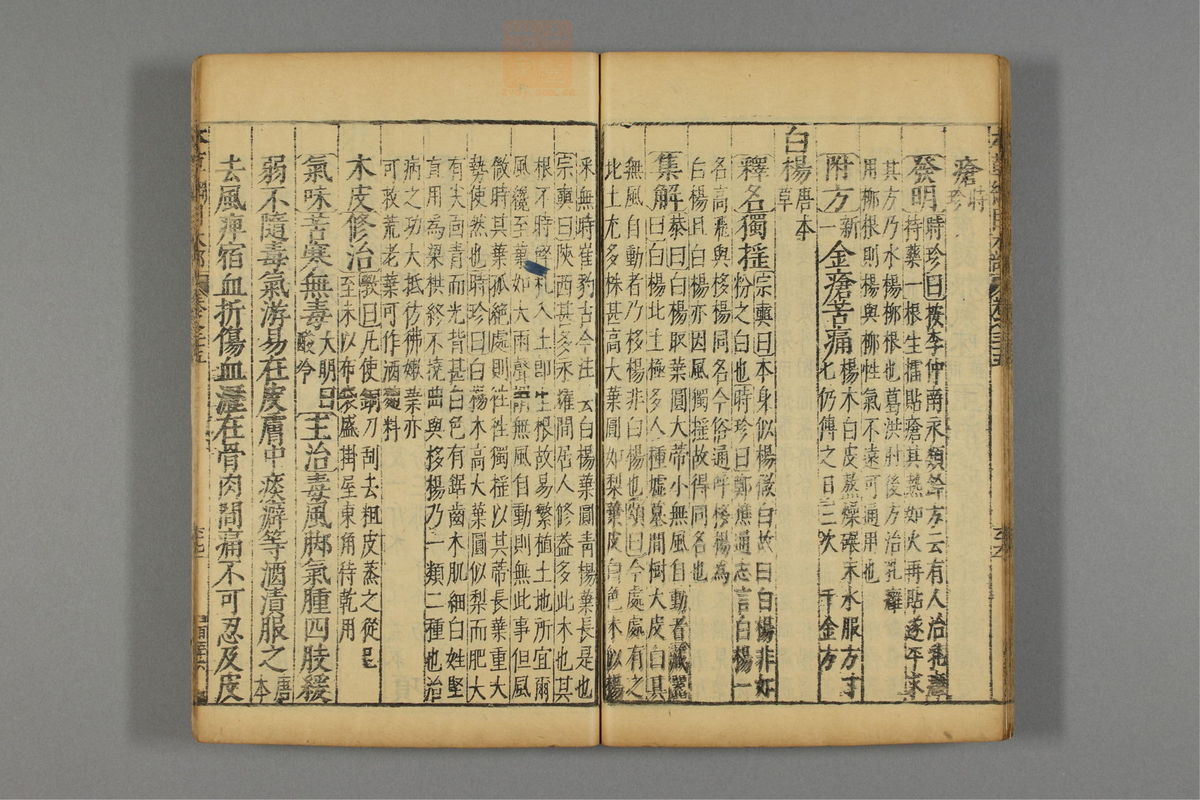 瘡時珍
發明時珍曰按李仲南永類鈐方云有人治乳癰
持藥一根生擂貼瘡其熱如火再貼遂平求
其方乃水楊柳根也葛洪肘後方治乳癰
用柳根則楊與柳性氣不遠可通用也
附方新一金瘡苦痛楊木白皮熬燥碾末水服方寸
匕仍傅之日三次 千金方
白楊唐本草
釋名獨搖宗奭曰木身似楊微白故曰白楊非如
粉之白也時珍曰鄭樵通志言白楊一
名高飛與栘楊同名今俗通呼栘楊為
白楊且白楊亦因風獨搖故得同名也
集解恭曰白楊取葉圓大蒂小無風自動者藏器
曰白楊北土極多人種墟墓間樹大皮白其
無風自動者乃栘楊非白楊也頌曰今處處有之
北土尤多株甚高大葉圓如梨葉皮白色木似楊
采無時崔豹古今注云白楊葉圓青楊葉長是也
宗奭曰陝西甚多永耀間居人修蓋多此木也其
根不時𥓂札入土即生根故易繁植土地所宜爾
風纔至葉如大雨聲謂無風自動則無此事但風
微時其葉孤絕處則往往獨搖以其蒂長葉重大
勢使然也時珍曰白楊木高大葉圓似梨而肥大
有尖面青而光背甚白色有鋸齒木肌細白性堅
直用為梁栱終不撓曲與栘楊乃一類二種也治
病之功大抵彷彿嫩葉亦
可救荒老葉可作酒麴料
木皮修治斅曰凡使銅刀刮去粗皮蒸之從巳
至未以布袋盛掛屋東角待乾用
氣味苦寒無毒大明曰酸冷主治毒風脚氣腫四肢緩
弱不隨毒氣游易在皮膚中痰癖等酒漬服之唐本
去風痺宿血折傷血瀝在骨肉間痛不可忍及皮